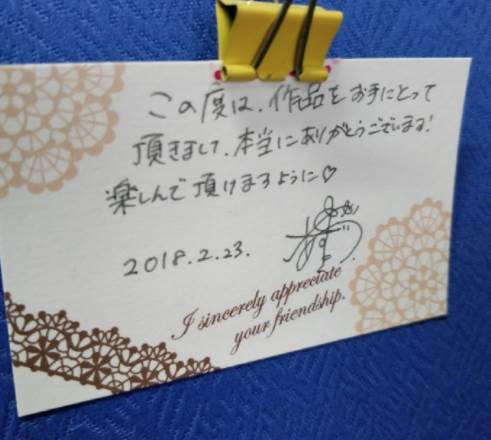 この度は、作品をお手にとって
頂きまして、本当にありがとうございます!
楽しんで頂けますように♡
2018.2.23.
I sincerely appreciate
your friendship.